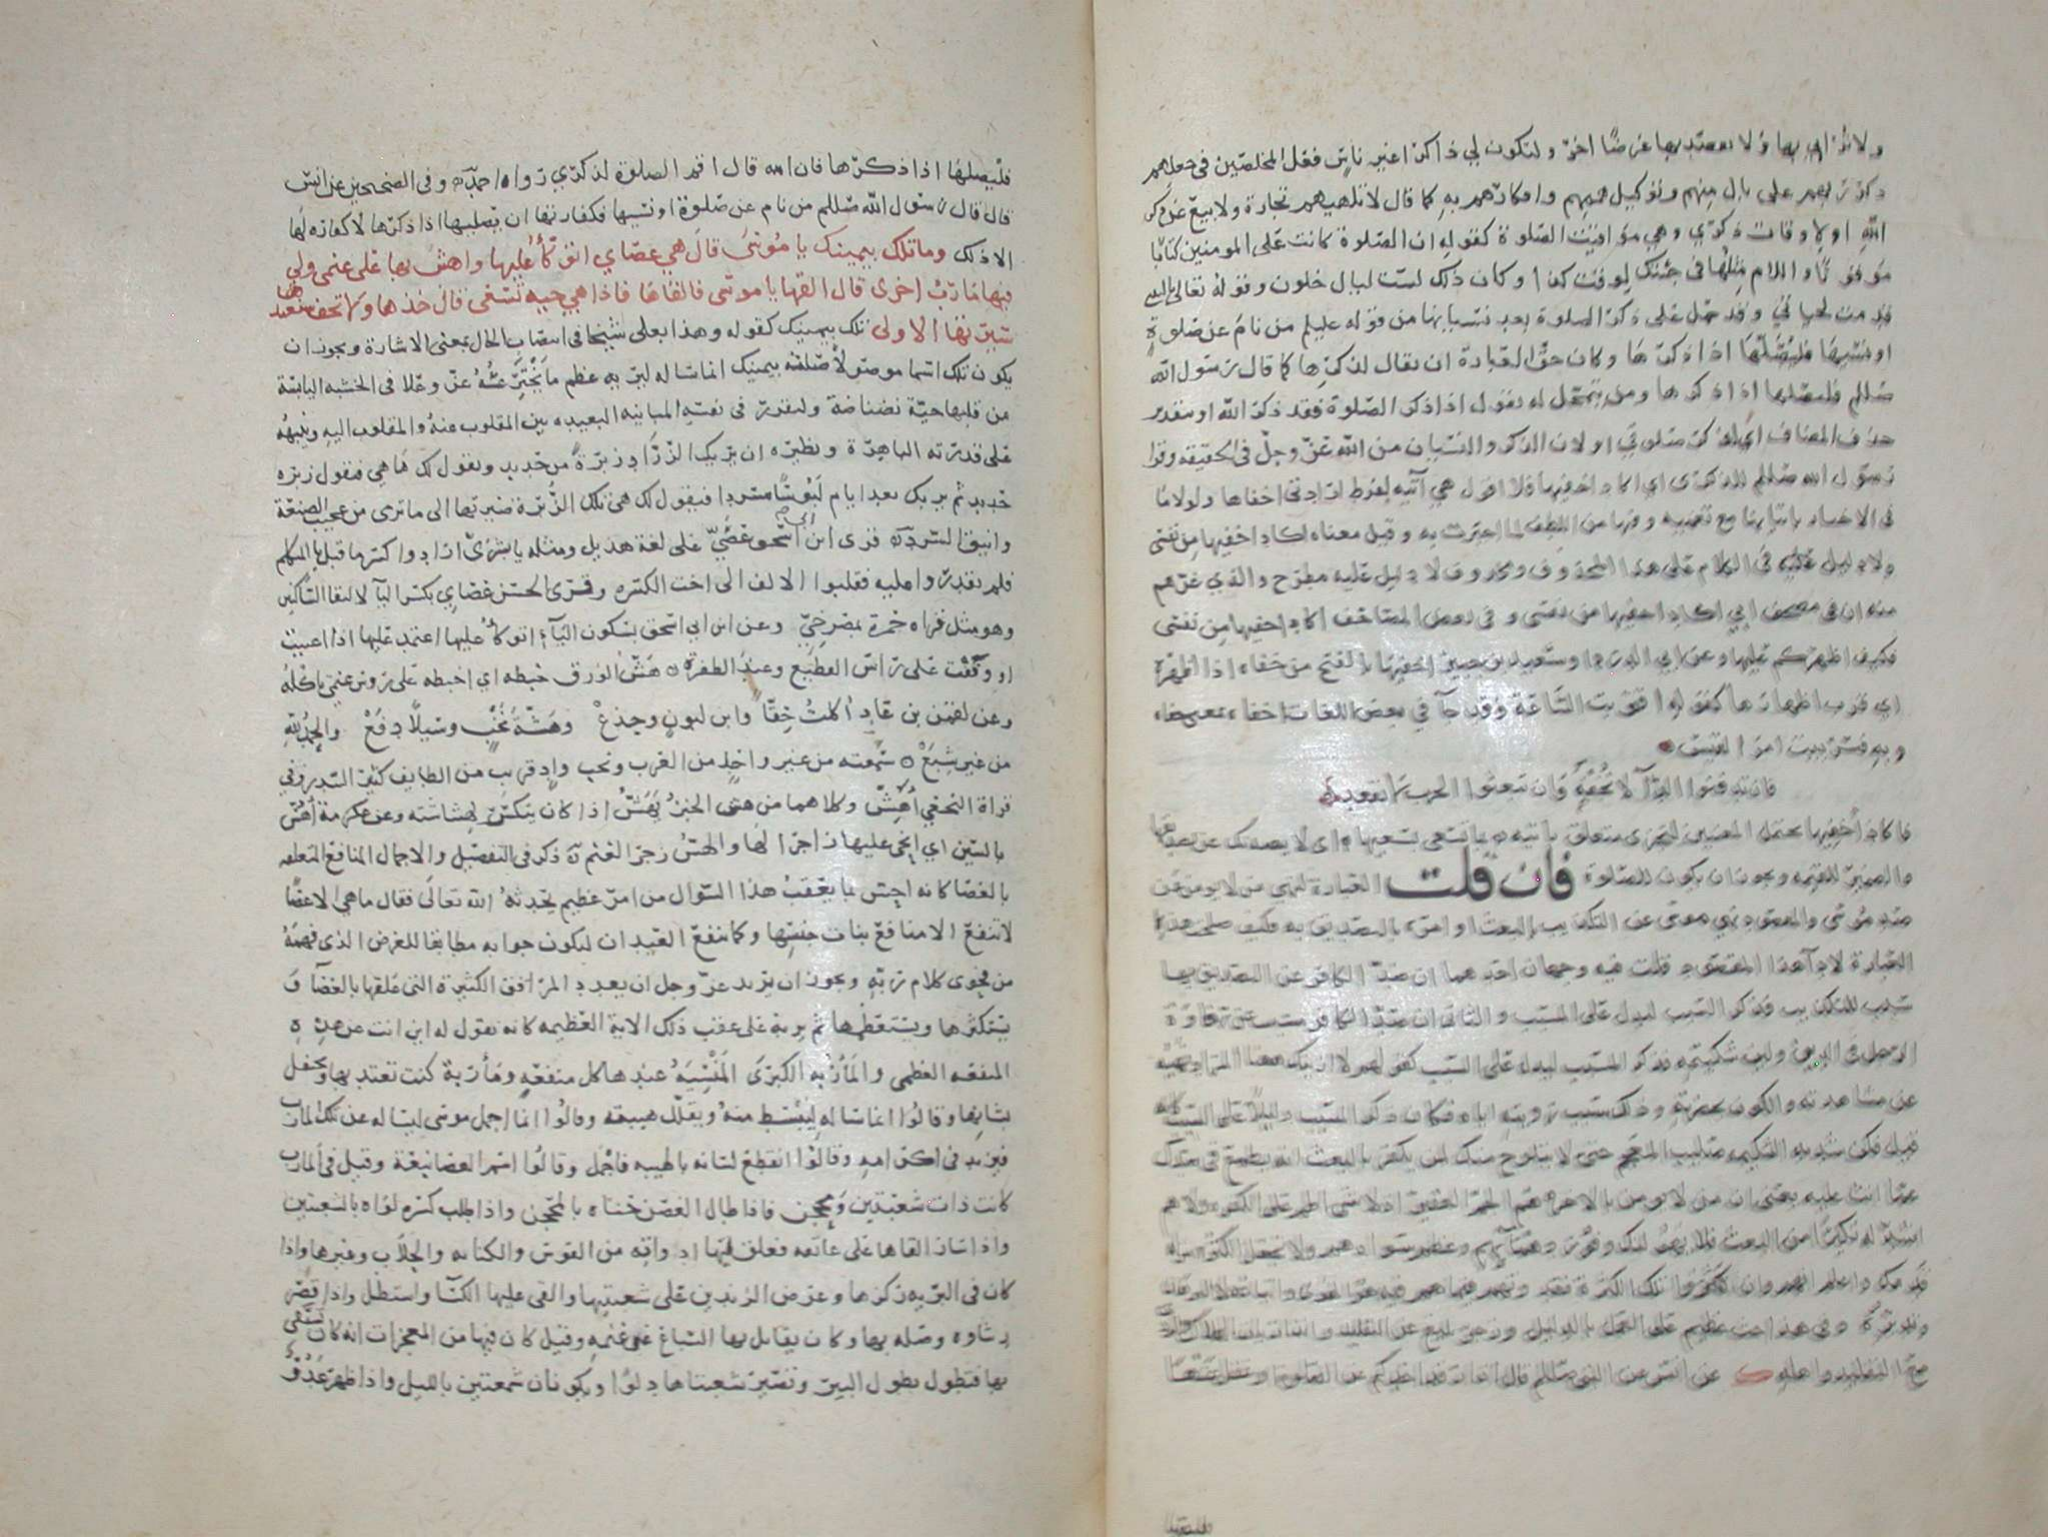 ولا ترائي بها ولا تقصد بها غرضا اخر ولتكون لي ذاكرا غير ناس فعل المخلصين في جعلهم
ذكر ربهم على بال منهم وتوكيل هممهم وافكارهم به كما قال لا تلهيهم تجارة ولا بيع عن ذكر
الله او لاوقات ذكري وهي مواقيت الصلوة كقوله ان الصلوة كانت على المومنين كتابا
موقوتا واللام مثلها في جئتك لوقت كذا وكان ذلك لست ليال خلون وقوله تعالى يا ليتني
قدمت لحياتي وقد حمل على ذكر الصلوة بعد نسيانها من قوله عليلم من نام عن صلوة
او نسيها فليصلها اذا ذكرها وكان حق العبادة ان يقال لذكرها كما قال رسول الله
صللم فليصلها اذا ذكرها ومن يتمحل له يقول اذا ذكر الصلوة فقد ذكر الله او بتقدير
حذف المضاف اي لذكر صلوتي او لان الذكر والنسيان من الله عز وجل في الحقيقة وقرا
رسول الله صللم للذكرى اي اكاد اخفيها فلا اقول هي آتية لفرط ارادتي اخفاها ولولا ما
في الاخبار باتيانها مع تعمية وقتها من اللطف لما اخبرت به وقيل معناه اكاد اخفيها من نفسي
ولا دليل عليه في الكلام على هذا المحذوف ومحذوف لا دليل عليه مطرح والذي غرهم
منه ان في مصحف ابي اكاد اخفيها من نفسي وفي بعض المصاحف اكاد اخفيها من نفسي
فكيف اظهركم عليها وعن ابي الدردا وسعيد بن جبير اخفيها بالفتح من خفاه اذا اظهره
اي قرب اظهارها كقوله اقتربت الساعة وقد جآ في بعض اللغات اخفاه بمعنى خفاه
وبه فسر بيت امرء القيس
فان تدفنوا الدآ لا نخفه وان تبعثوا الحرب لا نقعد
فاكاد اخفيها محتمل للمعنيين لتجزى متعلق باتية بما تسعى بسعيها اي لا يصدنك عن تصديقها
والضمير للقيمة ويجوز ان يكون للصلوة فان قلت العبارة لنهي من لا يومن عن
صد موسى والمقصود نهي موسى عن التكذيب بالبعث او امره بالتصديق به فكيف صلحت هذه
العبارة لادآ هذا المقصود قلت فيه وجهان احدهما ان صد الكافر عن التصديق بها
سبب للتكذيب فذكر السبب ليدل على المسبب والثاني ان صد الكافر مسبب عن رخاوة
الرجل في الدين ولين شكيمته فذكر المسبب ليدل على السبب كقولهم لا ارينك ههنا المراد نهيه
عن مشاهدته والكون بحضرته وذلك سبب رويته اياه فكان ذكر المسبب دليلا على السبب كانه
قيل فكن شديد الشكيمة صليب المعجم حتى لا يتلوح منك لمن يكفر بالبعث انه يطمع في صدك
عما انت عليه يعني ان من لا يومن بالاخرة هم الجم الغفير اذ لا شي اطم على الكفرة ولا هم
اشد له نكيرا من البعث فلا يهولنك وفور دهمآئهم وعظم سوادهم ولا تجعل الكثرة مزلة
قدمك واعلم انهم وان كثروا تلك الكثرة فقد وتهم فيما هم فيه هو الهوى واتباعه لا البرهان
وتدبره وفي هذا حث عظيم على العمل بالدليل وزجر بليغ عن التقليد وانذار بان الهلاك والردى
مع التقليد واهله عن انس عن النبي صللم قال
فليصلها اذا ذكرها فان الله قال اقم الصلوة لذكري رواه احمد وفي الصحيحين عن انس
قال قال رسول الله صللم من نام عن صلوة او نسيها فكفارتها ان يصليها اذا ذكرها لا كفارة لها
الا ذلك وما تلك بيمينك يا موسى قال هي عصاي اتوكأ عليها واهش بها على غنمي ولي
فيها مآرب اخرى قال القها يا موسى فالقاها فاذا هي حية تسعى قال خذها ولا تخف سنعيدها
سيرتها الاولى تلك بيمينك كقوله وهذا بعلي شيخا في انتصاب الحال بمعنى الاشارة ويجوز ان
يكون تلك اسما موصولا صلته بيمينك انما ساله ليريه عظم ما يخترعه عز وعلا في الخشبة اليابسة
من قلبها حية نضناضة وليقرر في نفسه المباينة البعيدة بين المقلوب عنه والمقلوب اليه وينبهه
على قدرته الباهرة ونظيره ان يريك الزراد زبرة من حديد ويقول لك ما هي فتقول زبرة
حديد ثم يريك بعد ايام لبوسا مسردا فيقول لك هي تلك الزبرة صيرتها الى ما ترى من عجيب الصنعة
وانيق السرد قرى ابن ابي اسحق عصي على لغة هذيل ومثله يا بشري ارادوا كسر ما قبل يا المتكلم
فلم يقدروا عليه فقلبوا الالف الى اخت الكسرة وقرى الحسن عصاي بكسر اليآ لالتقا الساكنين
وهو مثل قراة حمزة بمصرخي وعن ابن ابي اسحق بسكون اليآء اتوكأ عليها اعتمد عليها اذا اعييت
او وقفت على راس القطيع وعند الطفرة هش الورق خبطه اي اخبطه على روس غنمي تاكله
وعن لقمن بن عاد اكلت حقا وابن لبون وجذع وهشة نخب وسيلا دفع والحمد لله
من غير شبع سمعته من غير واحد من العرب ونخب واد قريب من الطايف كثير السدر وفي
قراة النخعي أهش وكلاهما من هش الخبز يهش اذا كان يتكسر لهشاشته وعن عكرمة أهس
بالسين اي انحي عليها زاجرا لها والهس زجر الغنم ذكر في التفصيل والاجمال المنافع المتعلقة
بالعصا كانه احس بما يعقب هذا السوال من امر عظيم يحدثه الله تعالى فقال ما هي الا عصا
لا تنفع الا منافع بنات جنسها وكما تنفع العيدان ليكون جوابه مطابقا للغرض الذي فهمه
من فحوى كلام ربه ويجوز ان يريد عز وجل ان يعدد المرافق الكثيرة التي علقها بالعصا و
يستكثرها ويستعظمها ثم يريه على عقب ذلك الاية العظيمة كانه يقول له اين انت عن هذه
المنفعة العظمى والمأربة الكبرى المنسية عندها كل منفعة ومأربة كنت تعتد بها وتحفل
بشانها وقالوا انما ساله ليبسط منه ويقلل هيبته وقالوا انما اجمل موسى ليساله عن تلك المارب
فيزيد في اكرامه وقالوا انقطع لسانه بالهيبة فاجمل وقالوا اسم العصا نبعة وقيل في المارب
كانت ذات شعبتين ومحجن فاذا طال الغصن حناه بالمحجن واذا طلب كسره لواه بالشعبتين
واذا سار القاها على عاتقه فعلق بها ادواته من القوس والكنانة والحلاب وغيرها واذا
كان في البرية ركزها وعرض الزندين على شعبتيها والقى عليها الكسآ واستظل واذا قصر
رشاوه وصله بها وكان يقاتل بها السباع عن غنمه وقيل كان فيها من المعجزات انه كان يستقي
بها فتطول بطول البير وتصير شعبتاها دلوا ويكونان شمعتين بالليل واذا ظهر عدو